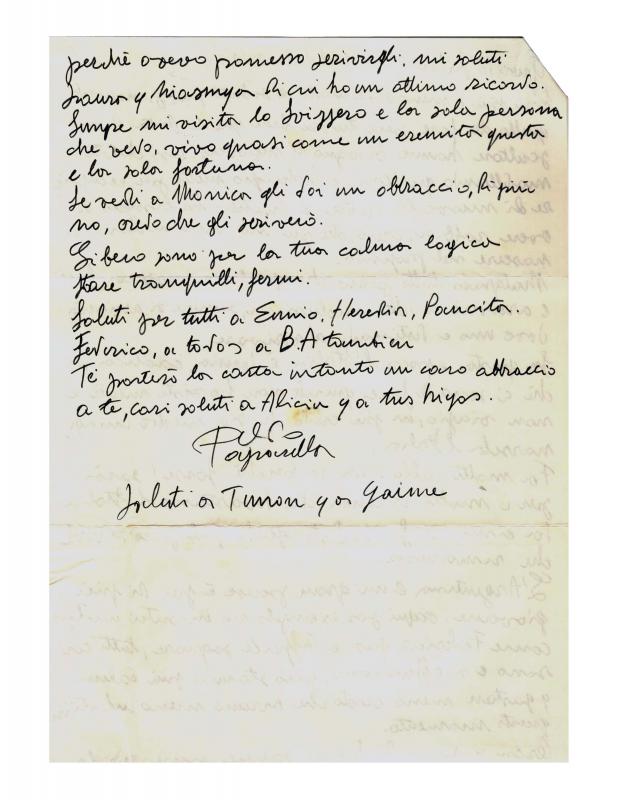 perchè avevo promesso scrivergli, mi saluti
Laura y di cui ho un ottimo ricordo.
Sempre mi visita lo Svizzero e la sola persona
che vedo, vivo quasi come un eremita questa
e la sola fortuna.
Se vedi a Monica gli dai un abbraccio, Di più
no, credo che gli scriverò.
sono per la tua calma logica
stare tranquilli, fermi.
Saluti per tutti a Ennio, Heredia, Pancita.
Federico, a todos a B.A tambien
Te porterò la carta intanto un caro abbraccio
a te, cari saluti a Alicia y a tus hijos.
Saluti a y a Gaime